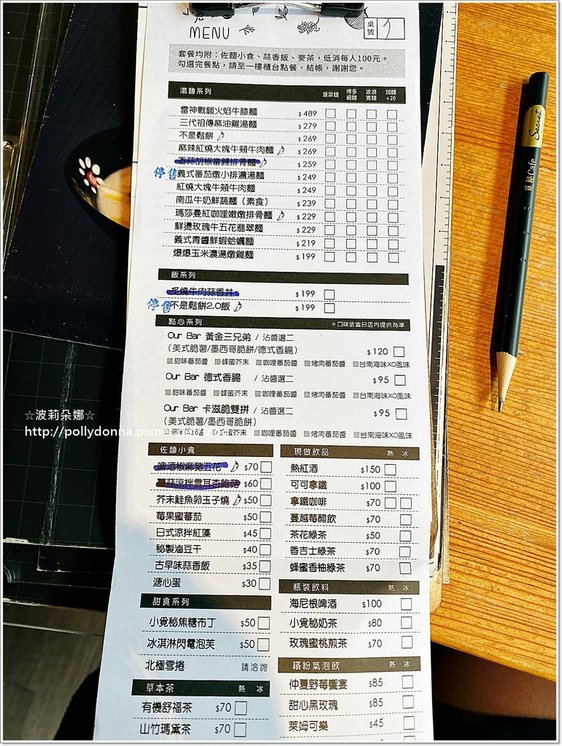 MENU
桌號
套餐均附：佐麵小食、蒜香飯、麥茶，低消每人100元。
勾選完餐點，請至一樓櫃台點餐、結帳，謝謝您。
湯麵系列 菠菜麵 博多細麵 波浪寬麵 加麵+20
雷神戰鎚火焰牛膝麵 $489
三代祖傳麻油雞湯麵 $279
不是鬆餅 $269
麻辣紅燒大塊牛頰牛肉麵 $269
$259
停售 義式番茄燉小排濃湯麵 $249
紅燒大塊牛頰牛肉麵 $249
南瓜牛奶鮮蔬麵（素食） $239
瑪莎曼紅咖哩嫩燉排骨麵 $229
鮮燙玫瑰牛五花翡翠麵 $229
義式青醬鮮蝦蛤蠣麵 $219
爆爆玉米濃湯燉雞麵 $199
飯系列
炙燒牛肉蒜香丼 $199
停售 不是鬆餅2.0飯 $199
點心系列 ＊口味依當日店內提供為準
Our Bar 黃金三兄弟 / 沾醬選二
（美式脆薯/墨西哥脆餅/德式香腸） $120
甜味番茄醬 蜂蜜芥末 咖哩番茄醬 烤肉番茄醬 台南海味XO風味
Our Bar 德式香腸 / 沾醬選二 $95
甜味番茄醬 蜂蜜芥末 咖哩番茄醬 烤肉番茄醬 台南海味XO風味
Our Bar 卡滋脆雙拼 / 沾醬選二 $95
（美式脆薯/墨西哥脆餅）
咖哩番茄醬 烤肉番茄醬 台南海味XO風味
☆波莉朵娜☆
http://pollydonna.pixn
佐麵小食
啤酒椒麻豬五花 $70
$60
芥末鮭魚卵玉子燒 $50
莓果蜜番茄 $50
日式涼拌紅藻 $45
秘製滷豆干 $40
古早味蒜香飯 $35
溏心蛋 $30
甜食系列
小覓秘焦糖布丁 $50
冰淇淋閃電泡芙 $50
北極雪捲 請洽詢
草本茶 熱 冰
有機舒福茶 $70
山竹瑪黛茶 $70
現做飲品 熱 冰
熱紅酒 $150
可可拿鐵 $100
拿鐵咖啡 $70
蔓越莓醋飲 $70
茶花綠茶 $50
香吉士綠茶 $70
蜂蜜香柚綠茶 $70
瓶裝飲料 熱 冰
海尼根啤酒 $100
小覓秘奶茶 $80
玫瑰蜜桃煎茶 $70
繽紛氣泡飲 熱 冰
仲夏野莓饗宴 $85
甜心黑玫瑰 $85
萊姆可樂 $45
Secret
Cafe